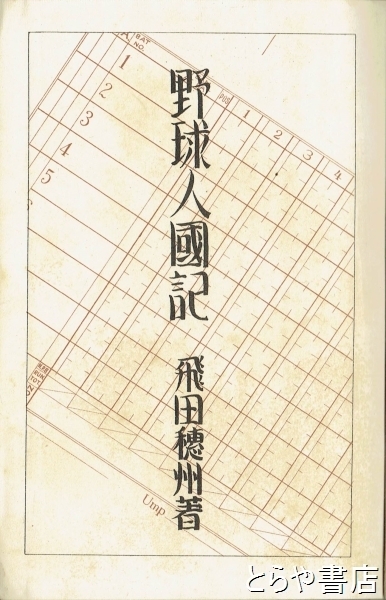 野球人國記
飛田穂州著
BAT
NO.
1
2
3
4
5
POS
1
2
3
4
RUN
TOT.
Ump
とらや書店